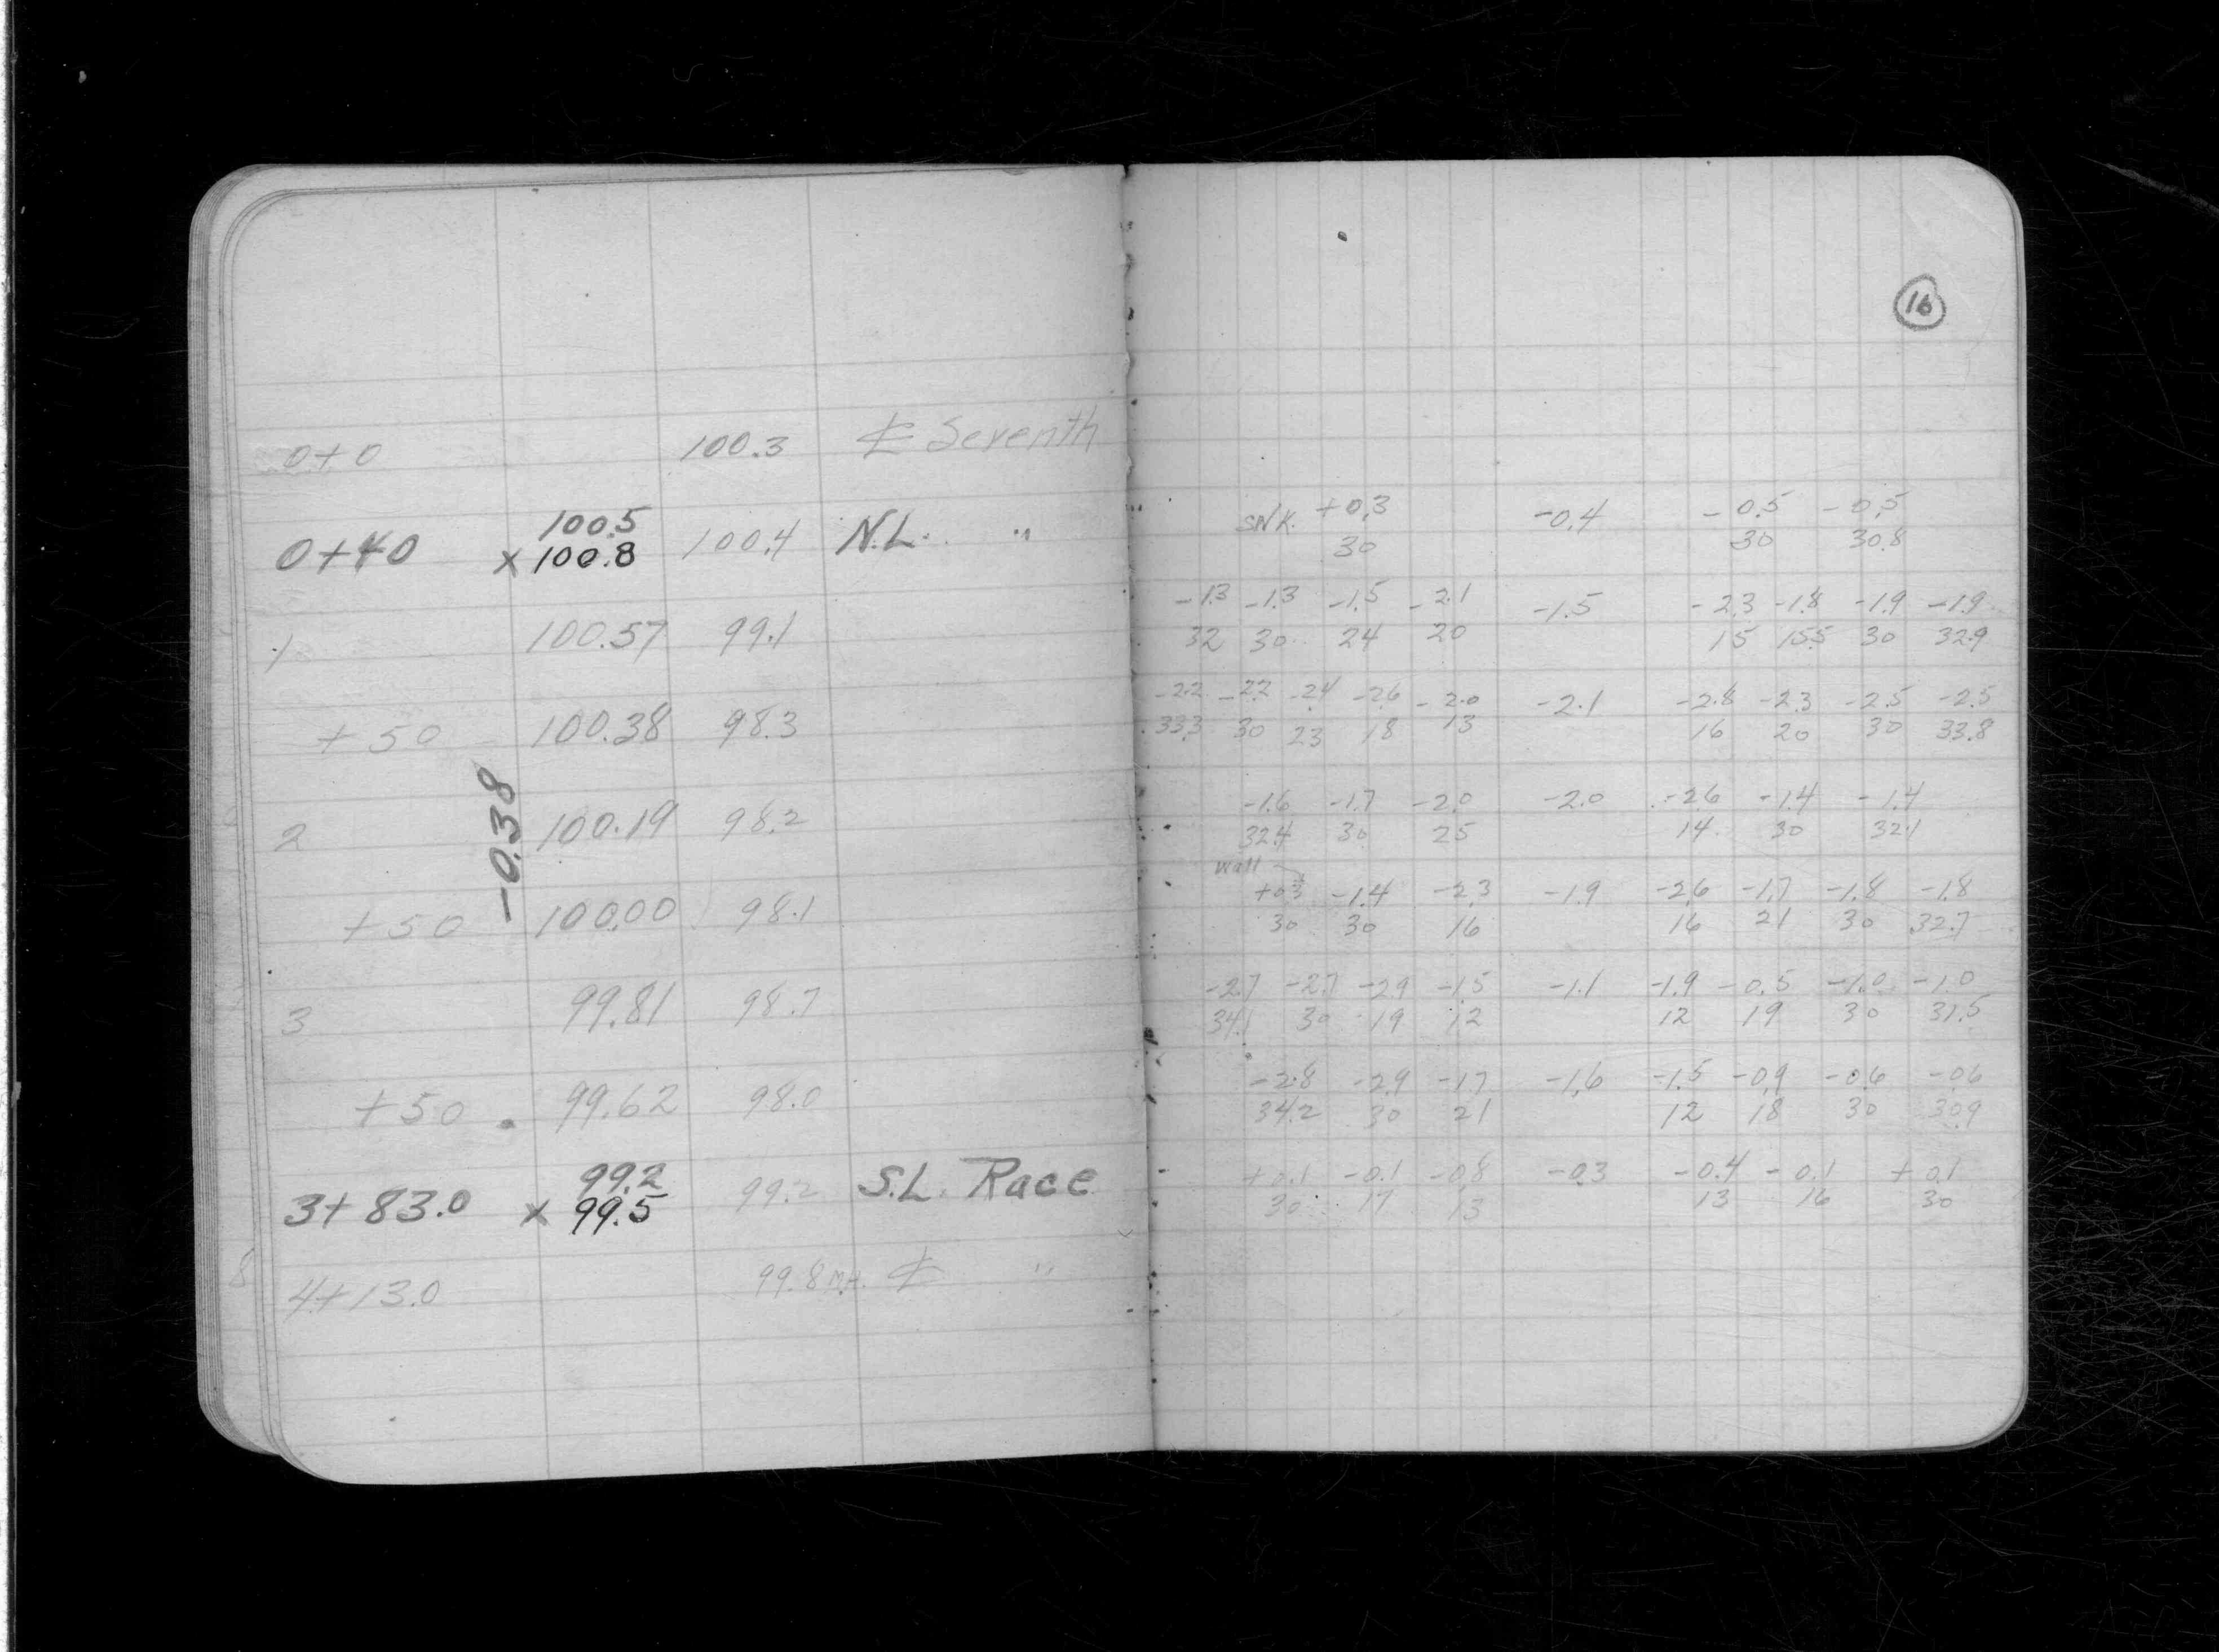 16
0+0 100.3 ℄ Seventh
100.5
0+40 x 100.8 100.4 N.L. "
1 100.57 99.1
+50 100.38 98.3
-0.38
2 100.19 98.2
+50 100.00 98.1
3 99.81 98.7
+50 99.62 98.0
99.2
3+83.0 x 99.5 99.2 S.L. Race
4+13.0 99.8 M.H. ℄ "
SWK. +0.3 -0.4 -0.5 -0.5
30 30 30.8
-1.3 -1.3 -1.5 -2.1 -1.5 -2.3 -1.8 -1.9 -1.9
32 30 24 20 15 15.5 30 32.9
-2.2 -2.2 -2.4 -2.6 -2.0 -2.1 -2.8 -2.3 -2.5 -2.5
33.3 30 23 18 13 16 20 30 33.8
-1.6 -1.7 -2.0 -2.0 -2.6 -1.4 -1.4
32.4 30 25 14 30 32.1
Wall
+0.3 -1.4 -2.3 -1.9 -2.6 -1.7 -1.8 -1.8
30 30 16 16 21 30 32.7
-2.7 -2.7 -2.9 -1.5 -1.1 -1.9 -0.5 -1.0 -1.0
34.1 30 19 12 12 19 30 31.5
-2.8 -2.9 -1.7 -1.6 -1.5 -0.9 -0.6 -0.6
34.2 30 21 12 18 30 30.9
+0.1 -0.1 -0.8 -0.3 -0.4 -0.1 +0.1
30 17 13 13 16 30